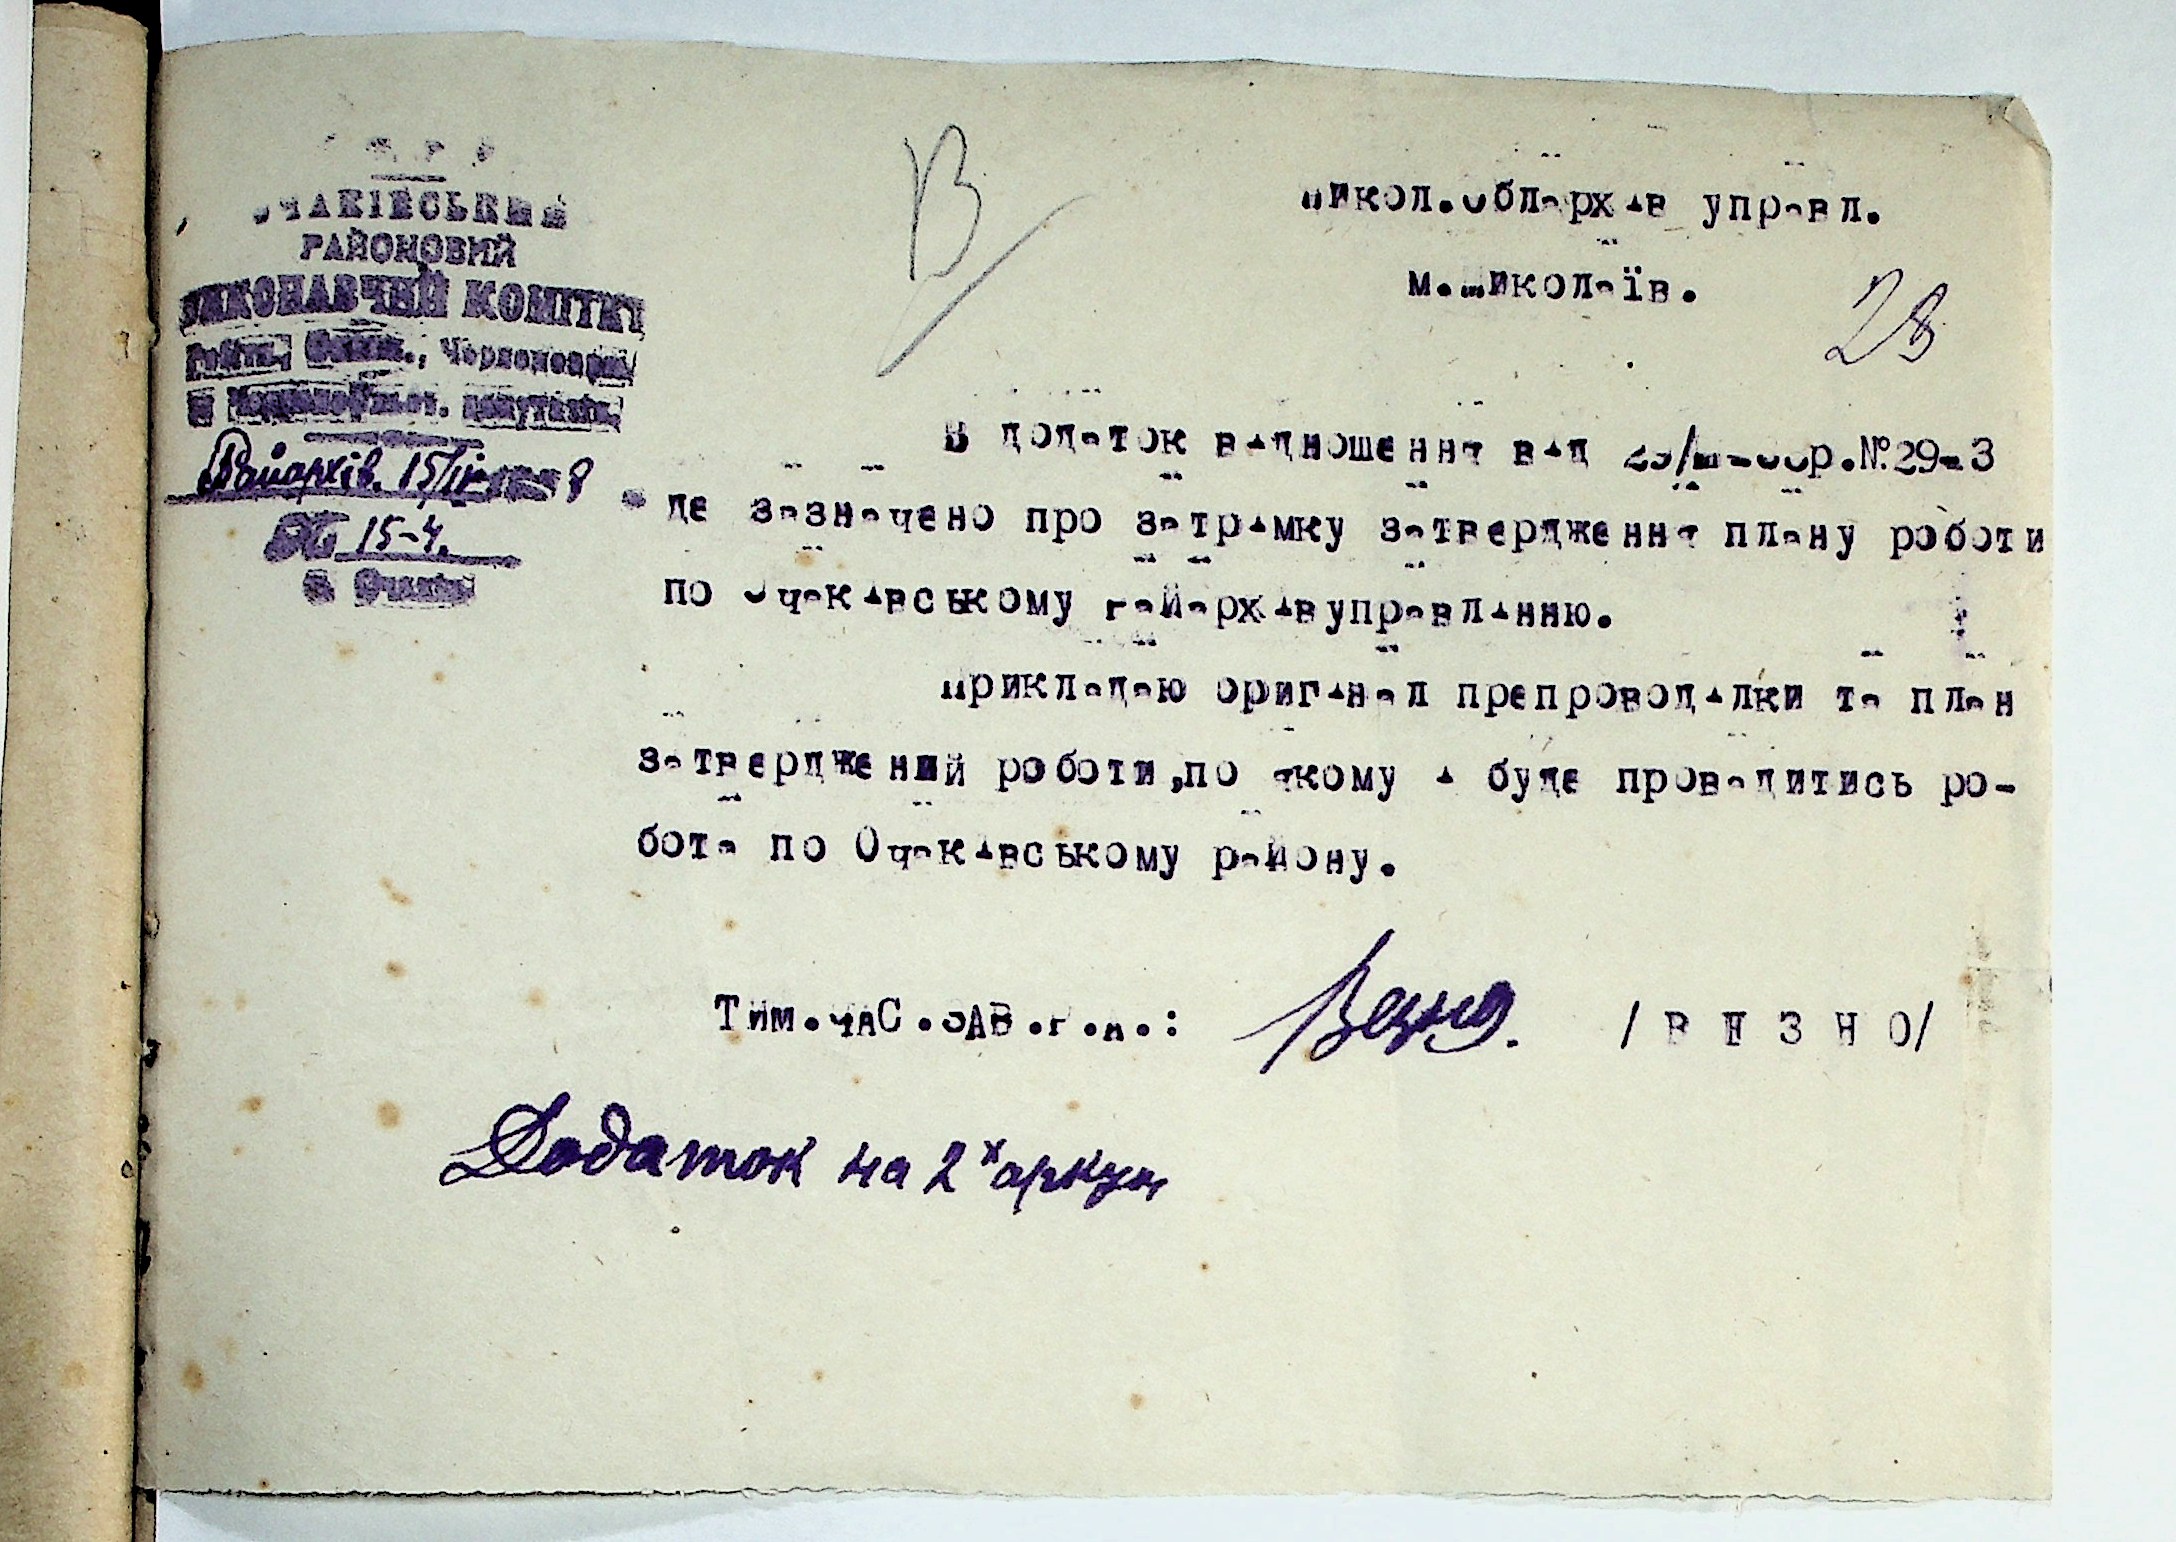 ОЧАКІВСЬКИЙ
РАЙОНОВИЙ
ВИКОНАВЧИЙ КОМІТЕТ
Робітн., Селян., Червоноарм.
Райархів. 15/IV 8
№ 15-4.
м. Очаків
В
Микол.Облархів управл.
м.Миколаїв.
28
В додаток відношення від 25/III-38р.№29-3
де зазначено про затримку затвердження плану роботи
по Очаківському Райархівуправлінню.
Прикладаю оригінал препроводілки та план
затверджений роботи,по якому і буде проводитись ро-
бота по Очаківському району.
Тим.чаС.ЗАВ.Р.А.:
/В Я З Н О/
Додаток на 2х аркуш